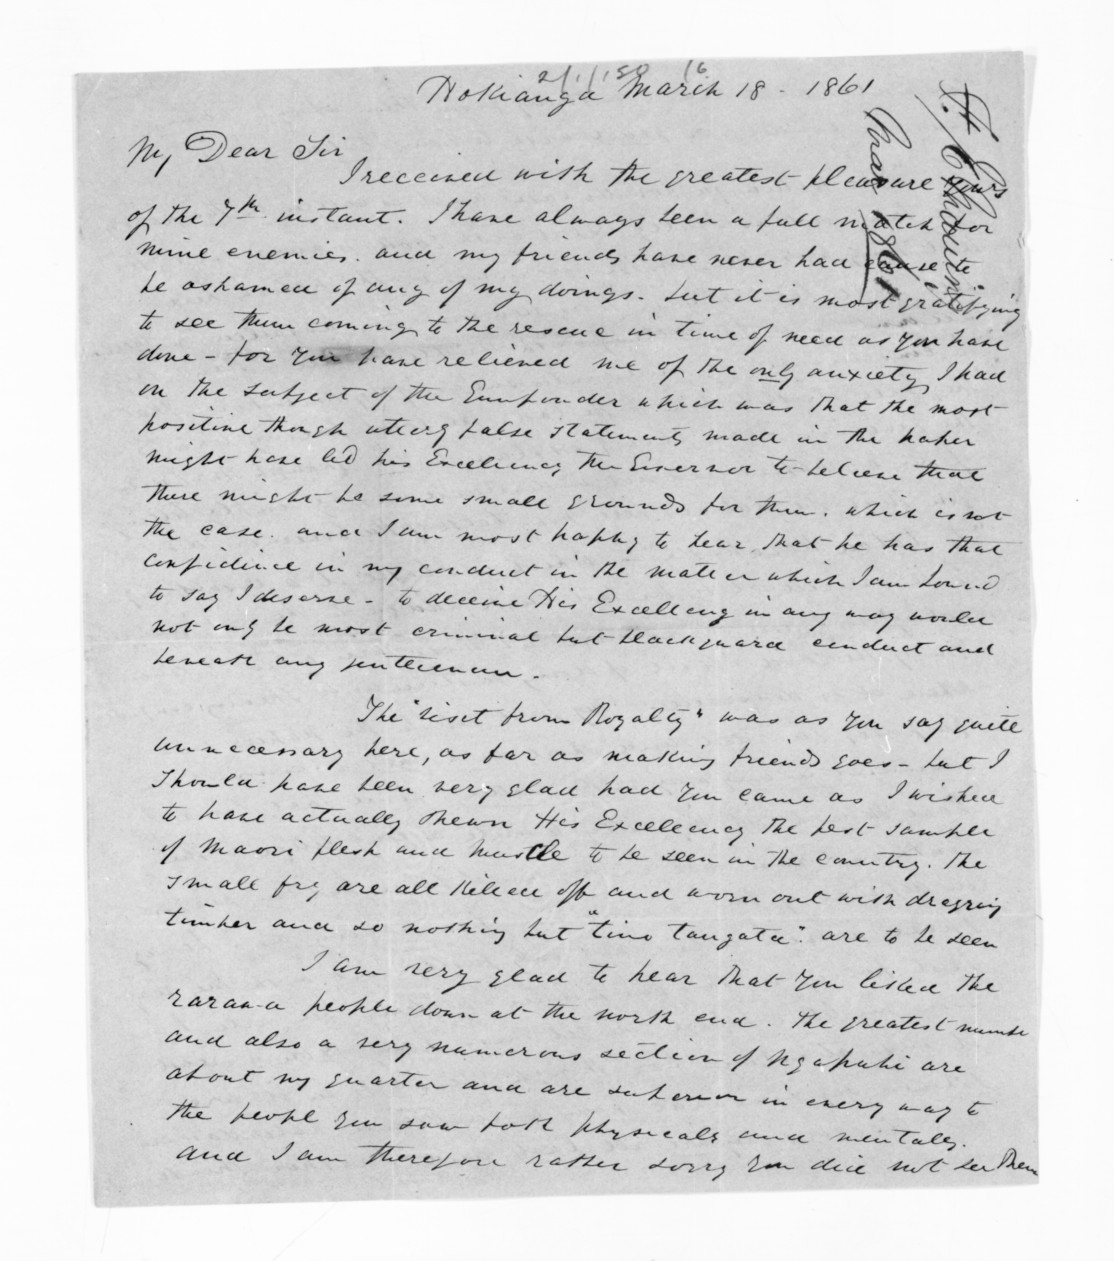 Hokianga March 18 - 1861
My Dear Sir
I received with the greatest pleasure yours
of the 7th instant. I have always been a full match for
mine enemies. and my friends have never had cause to
be ashamed of any of my doings. but it is most gratifying
to see them coming to the rescue in time of need as you have
done - for you have relieved me of the only anxiety I had
on the subject of the Gunpowder which was that the most
positive though uterly false statements made in the paper
might have led his Excellency the Governor to beleive that
there might be some small grounds for them. which is not
the case. and I am most happy to hear that he has that
confidence in my conduct in the matter which I am bound
to say I deserve - to deceive His Excellency in any way would
not only be most criminal but blackguard conduct and
beneath any gentleman.
The "visit from Royalty" was as you say quite
unnecessary here, as far as making friends goes - but I
should have been very glad had you came as I wished
to have actually shewn His Excellency the best sample
of Maori flesh and muscle to be seen in the country. the
small fry are all killed off and worn out with dragging
timber and so nothing but "tino tangata". are to be seen
I am very glad to hear that you liked the
rarawa people down at the north end. the greatest number
and also a very numerous section of Ngapuhi are
about my quarter and are superior in every way to
the peopl you saw both physically and mentally.
and I am therefore rather sorry you did not see them
1861